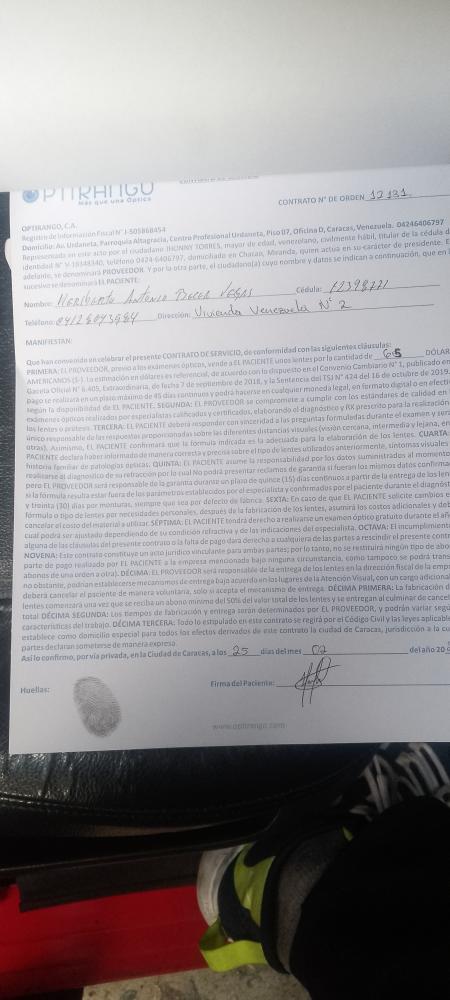 OPTIRANGO
Más que una Óptica
CONTRATO N° DE ORDEN 12131
OPTIRANGO, C.A.
Registro de Información Fiscal N° J-505868454
Domicilio: Av. Urdaneta, Parroquia Altagracia, Centro Profesional Urdaneta, Piso 07, Oficina D, Caracas, Venezuela. 04246406797
Representado en este acto por el ciudadano JHONNY TORRES, mayor de edad, venezolano, civilmente hábil, titular de la cédula d
identidad N° V-18348340, teléfono 0424-6406797, domiciliado en Chacao, Miranda, quien actúa en su carácter de presidente. E
adelante, se denominará PROVEEDOR. Y por la otra parte, el ciudadano(a) cuyo nombre y datos se indican a continuación, que en l
sucesivo se denominará EL PACIENTE:
Nombre: Heriberto Antonio Vegas Cédula: 12398771
Teléfono: 04128093984 Dirección: Vivienda Venezuela N° 2
MANIFIESTAN:
Que han convenido en celebrar el presente CONTRATO DE SERVICIO, de conformidad con las siguientes cláusulas:
PRIMERA: EL PROVEEDOR, previo a los exámenes ópticos, vende a EL PACIENTE unos lentes por la cantidad de 65 DÓLAR
AMERICANOS ($-). La estimación en dólares es referencial, de acuerdo con lo dispuesto en el Convenio Cambiario N° 1, publicado en
Gaceta Oficial N° 6.405, Extraordinaria, de fecha 7 de septiembre de 2018, y la Sentencia del TSJ N° 424 del 16 de octubre de 2019.
pago se realizará en un plazo máximo de 45 días continuos y podrá hacerse en cualquier moneda legal, en formato digital o en efecti
según la disponibilidad de EL PACIENTE. SEGUNDA: EL PROVEEDOR se compromete a cumplir con los estándares de calidad en
exámenes ópticos realizados por especialistas calificados y certificados, elaborando el diagnóstico y RX prescrito para la realización
los lentes o prótesis. TERCERA: EL PACIENTE deberá responder con sinceridad a las preguntas formuladas durante el examen y será
único responsable de las respuestas proporcionadas sobre las diferentes distancias visuales (visión cercana, intermedia y lejana, en
otras). Asimismo, EL PACIENTE confirmará que la fórmula indicada es la adecuada para la elaboración de los lentes. CUARTA:
PACIENTE declara haber informado de manera correcta y precisa sobre el tipo de lentes utilizados anteriormente, síntomas visuales
historia familiar de patologías ópticas. QUINTA: EL PACIENTE asume la responsabilidad por los datos suministrados al momento
realizarse el diagnóstico de su refracción por lo cual No podrá presentar reclamos de garantía si fueran los mismos datos confirma
pero EL PROVEEDOR será responsable de la garantía durante un plazo de quince (15) días continuos a partir de la entrega de los len
si la fórmula resulta estar fuera de los parámetros establecidos por el especialista y confirmados por el paciente durante el diagnóst
y treinta (30) días por monturas, siempre que sea por defecto de fábrica. SEXTA: En caso de que EL PACIENTE solicite cambios e
fórmula o tipo de lentes por necesidades personales, después de la fabricación de los lentes, asumirá los costos adicionales y deb
cancelar el costo del material a utilizar. SÉPTIMA: EL PACIENTE tendrá derecho a realizarse un examen óptico gratuito durante el añ
cual podrá ser ajustado dependiendo de su condición refractiva y de las indicaciones del especialista. OCTAVA: El incumplimiento
alguna de las cláusulas del presente contrato o la falta de pago dará derecho a cualquiera de las partes a rescindir el presente contr
NOVENA: Este contrato constituye un acto jurídico vinculante para ambas partes; por lo tanto, no se restituirá ningún tipo de abon
parte de pago realizado por EL PACIENTE a la empresa mencionado bajo ninguna circunstancia, como tampoco se podrá trans
abonos de una orden a otra). DÉCIMA: EL PROVEEDOR será responsable de la entrega de los lentes en la dirección fiscal de la empr
no obstante, podrían establecerse mecanismos de entrega bajo acuerdo en los lugares de la Atención Visual, con un cargo adicional
deberá cancelar el paciente de manera voluntaria, solo si acepta el mecanismo de entrega. DÉCIMA PRIMERA: La fabricación d
lentes comenzará una vez que se reciba un abono mínimo del 50% del valor total de los lentes y se entregan al culminar de cancel
total DÉCIMA SEGUNDA: Los tiempos de fabricación y entrega serán determinados por EL PROVEEDOR, y podrán variar segú
características del trabajo. DÉCIMA TERCERA: Todo lo estipulado en este contrato se regirá por el Código Civil y las leyes aplicable
establece como domicilio especial para todos los efectos derivados de este contrato la ciudad de Caracas, jurisdicción a la cu
partes declaran someterse de manera expresa.
Así lo confirmo, por vía privada, en la Ciudad de Caracas, a los 25 días del mes 02 del año 20
Huellas:
Firma del Paciente:
www.optirango.com